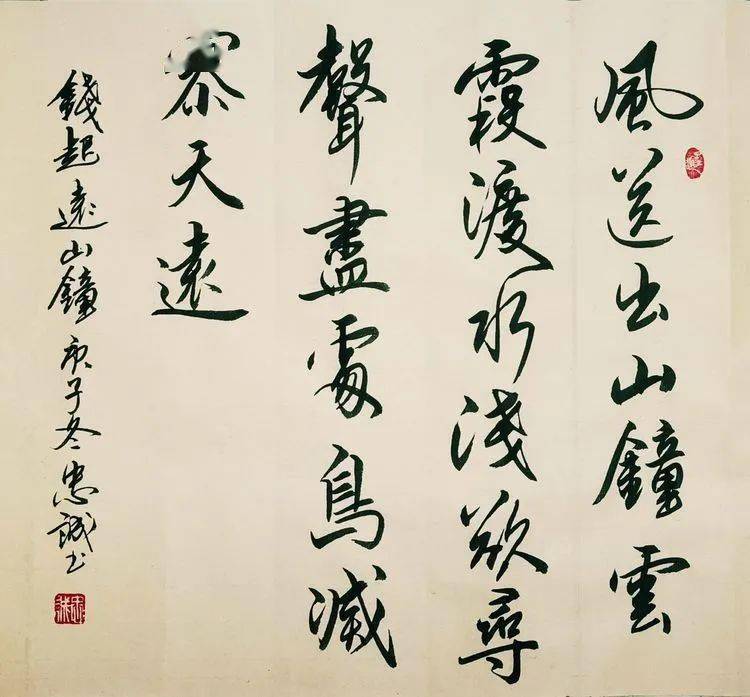 風送出山鐘雲
霞渡水淺欲尋
聲盡處鳥滅
寥天遠
錢起遠山鐘庚子冬忠誠书